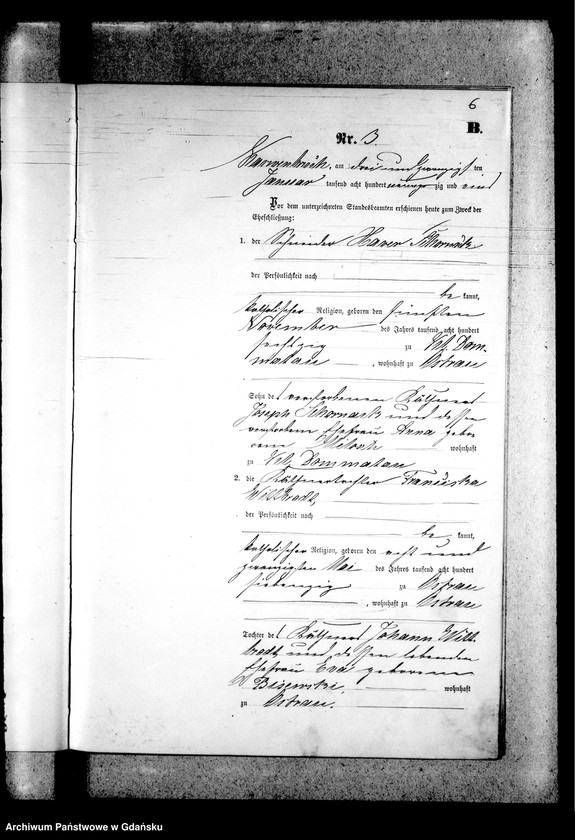 6
B.
Nr. 3.
Karwenbruch am drei und zwanzigsten
Januar tausend acht hundert neunzig und eins
Vor dem unterzeichneten Standesbeamten erschienen heute zum Zweck der
Eheschließung:
1. der Schneider Xaver
der Persönlichkeit nach
be kannt,
katholischer Religion, geboren den fünften
November des Jahrs tausend acht hundert
sechszig zu Kl. Dom-
matau, wohnhaft zu Ostrau
Sohn des verstorbenen
Joseph und dessen
verstorbenen Ehefrau Anna gebor
enen wohnhaft
zu Kl. Dommatau
2. die Käthnertochter Franciska
Willbradt,
der Persönlichkeit nach
be kannt,
katholischer Religion, geboren den acht und
zwanzigsten Mai des Jahrs tausend acht hundert
siebenzig zu Ostrau
, wohnhaft zu Ostrau
Tochter des Johann Will-
bradt und dessen lebenden
Ehefrau Eva geborenen
Bisewski, wohnhaft
zu Ostrau.
Archiwum Państwowe w Gdańsku